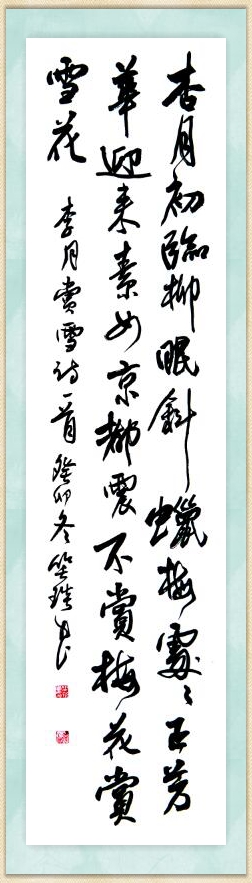 杏月初臨柳眼斜蠟梅處々正芳
華迎来素女京都震不賞梅花賞
雪花 杏月赏雪诗一首 癸卯冬